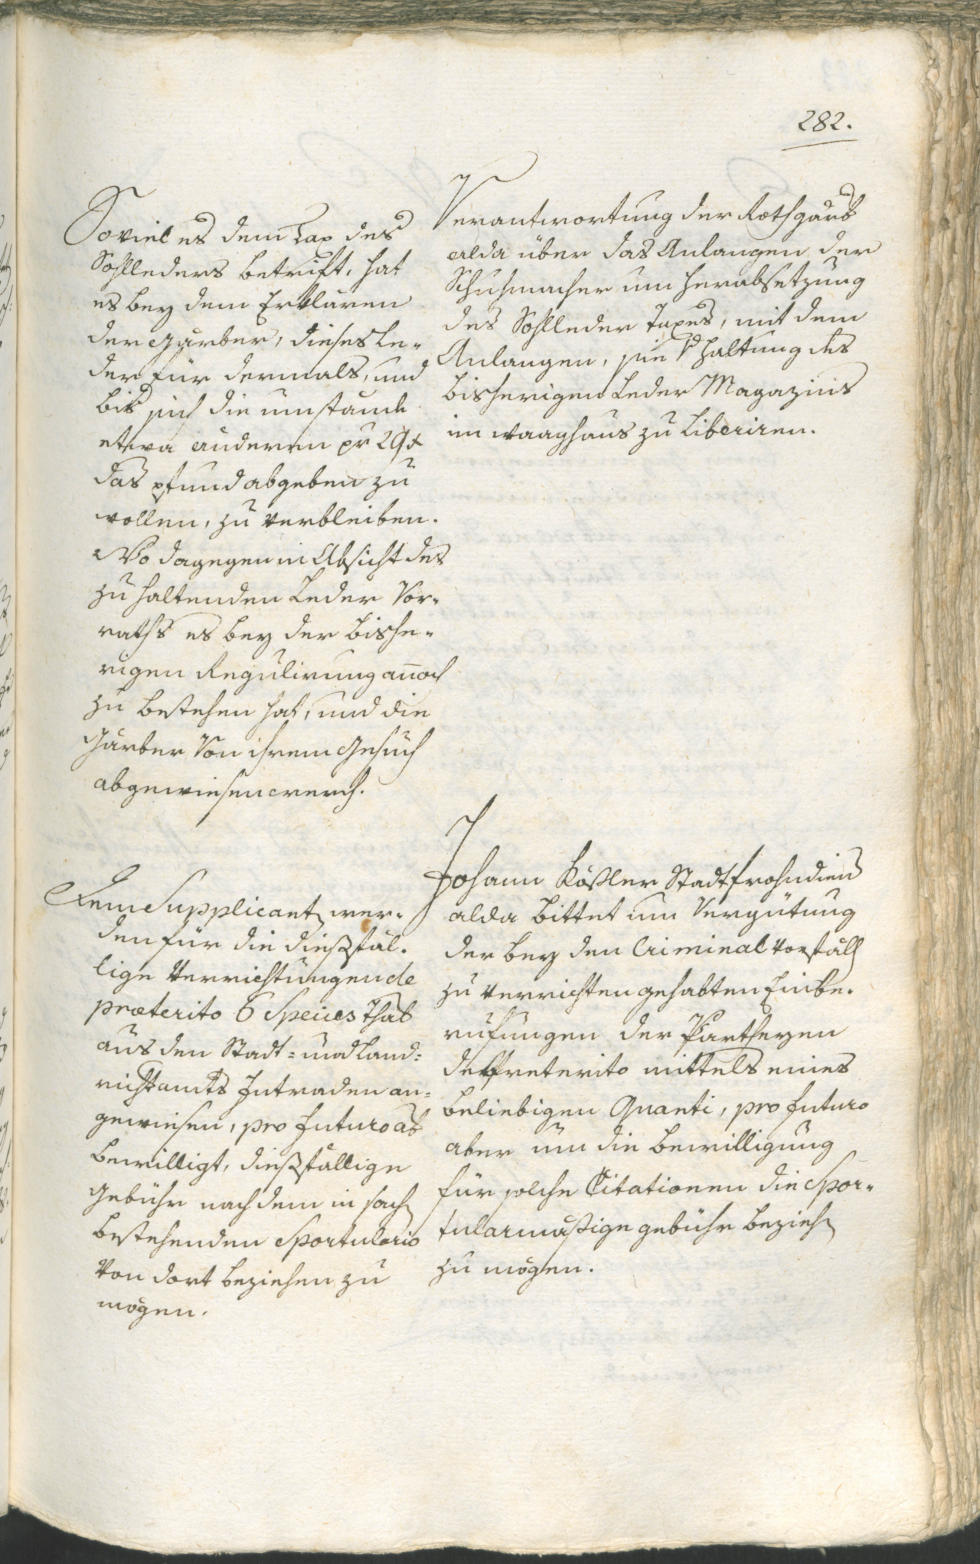 282.
Soviel es dem Tax des
Sohlleders betrift, hat
es bey dem Erklären
der Gärber, dieses Le-
der für dermals, und
bis sich die umstände
etwa anderen pr 29 x
das pfund abgeben zu
wollen, zu verbleiben.
Wo dagegen in Absicht des
zu haltenden Leder Vor-
raths es bey der bishe-
rigen Regulirung annoch
zu bestehen hat, und die
Gärber von ihrem Gesuch
abgewiesen werd.
Verantwortung der Rothgärb
alda über das Anlangen der
Schuhmacher um Herabsetzung
des Sohlleder Taxes, mit dem
Anlangen, sie Vhaltung des
bisherigen Leder Magazins
im waaghaus zu Liberiren.
Dem Supplicanten wer-
den für die dießfäl-
lige Verrichtungen de
præterito 6 Species Thal
aus den Stadt= und Land=
richtamts Intraden an-
gewiesen, pro futuro ab
bewilligt, dießfällige
Gebühr nach dem in sach
bestehenden Sportulario
von dort beziehen zu
mögen.
Johann Kößler Stadtfrohndien
alda bittet um Vergütung
der bey den Criminal vorfäll
zu verrichten gehabten Einbe-
rufungen der Partheyen
de præterito mittels eines
beliebigen Quanti, pro futuro
aber um die bewilligung
für solche Citationen die Spor-
tularmäßige gebühr bezieh
zu mögen.